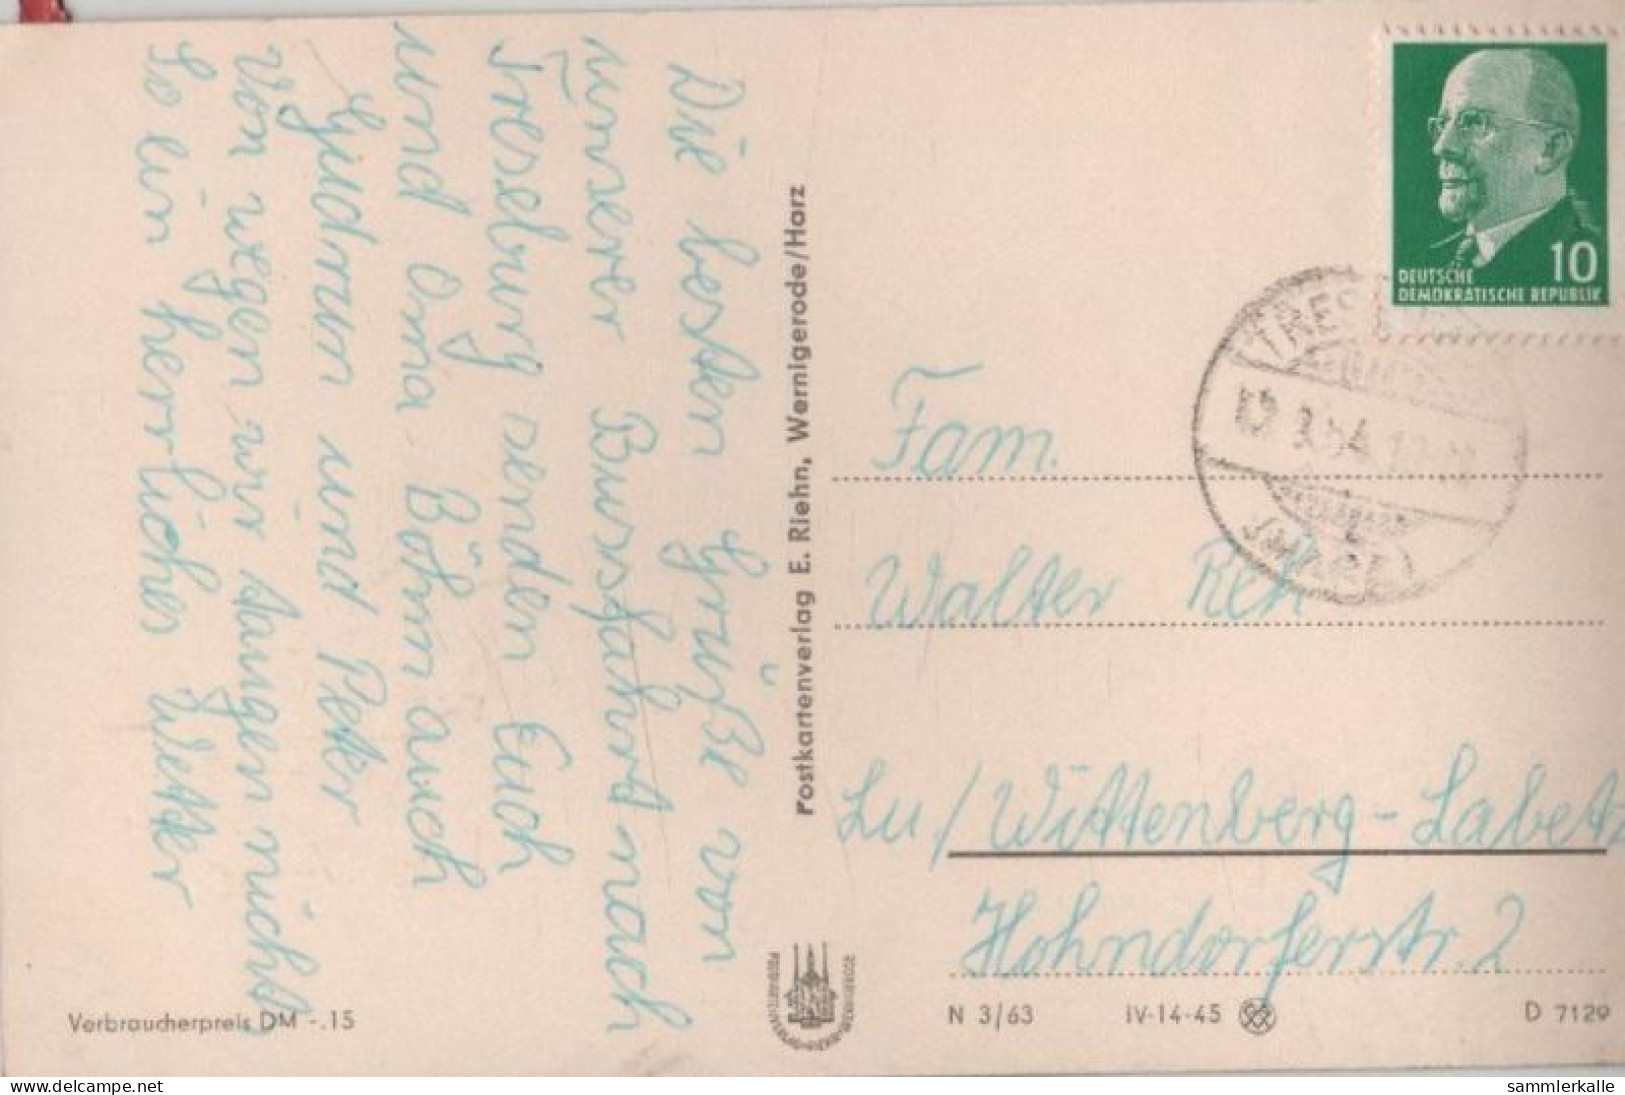 Die besten Grüße von
unserer Bussfahrt nach
Treseburg senden Euch
und Oma Böhm auch
Gudrun und Peter
Von wegen wir taugen nicht
So ein herrliches Wetter
Postkartenverlag E. Riehn, Wernigerode/Harz
10
DEUTSCHE
DEMOKRATISCHE REPUBLIK
Fam.
Walter
Lu/Wittenberg-Labetz
Hohndorferstr. 2
Verbraucherpreis DM -.15
N 3/63 IV-14-45 D 7129
delcampe.net
sammlerkalle